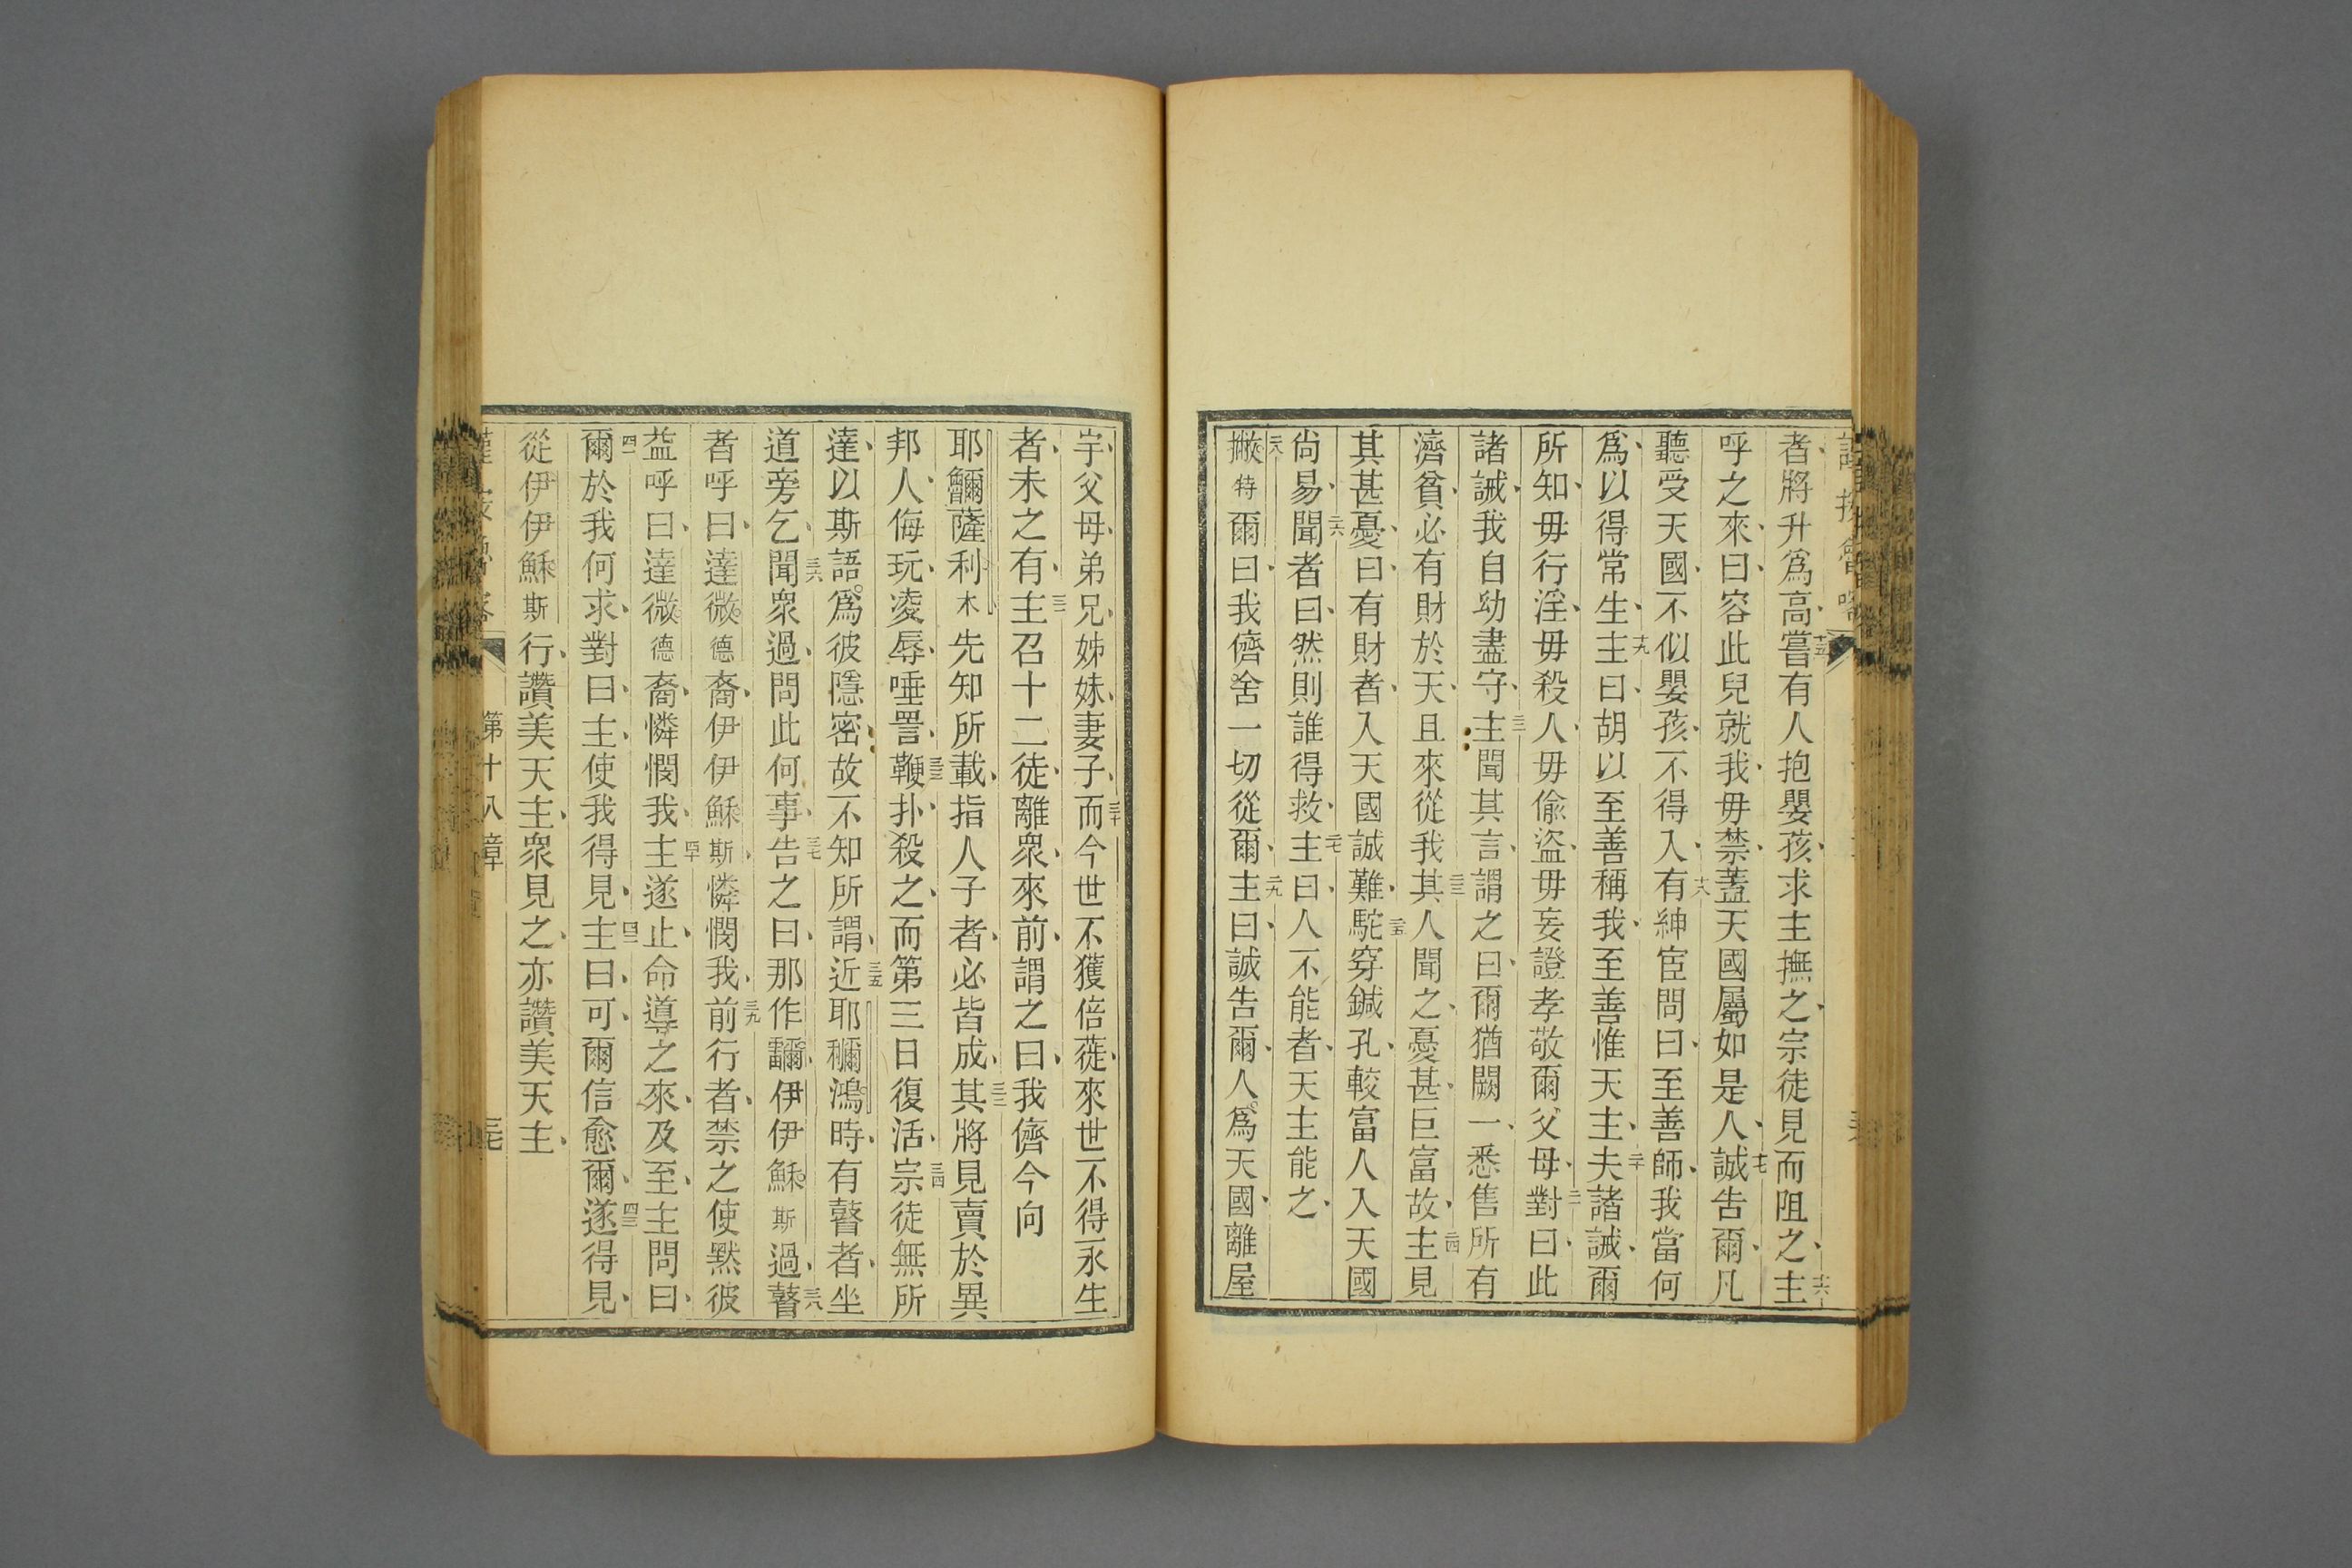 者、將升爲高、十五嘗有人抱嬰孩、求主撫之、宗徒見而阻之、十六主
呼之來、曰、容此兒就我、毋禁、蓋天國屬如是人、十七誠吿爾、凡
聽受天國、不似嬰孩、不得入、十八有紳宦問曰、至善師、我當何
爲、以得常生、十九主曰、胡以至善稱我、至善惟天主、二十夫諸誡、爾
所知、毋行淫、毋殺人、毋偸盜、毋妄證、孝敬爾父母、二一對曰、此
諸誡、我自幼盡守、二二主聞其言、謂之曰、爾猶闕一、悉售所有
濟貧、必有財於天、且來從我、二三其人聞之、憂甚、巨富故、二四主見
其甚憂、曰、有財者、入天國誠難、二五駝穿鍼孔、較富人入天國
尙易、二六聞者曰、然則誰得救、二七主曰、人不能者、天主能之、
二八撇特爾曰、我儕舍一切從爾、二九主曰、誠吿爾、人爲天國、離屋
宇、父母、弟兄、姊妹、妻子、三十而今世不獲倍蓰、來世不得永生
者、未之有、三一主召十二徒、離衆、來前、謂之曰、我儕今向
耶薩利木、先知所載、指人子者、必皆成、三二其將見賣於異
邦人、侮玩、凌辱、唾詈、三三鞭扑、殺之、而第三日復活、三四宗徒無所
達、以斯語。爲彼隱密、故不知所謂、三五近耶鴻時、有瞽者、坐
道旁乞、三六聞衆過、問此何事、三七吿之曰、那作伊伊穌斯過、三八瞽
者呼曰、達微德裔、伊伊穌斯、憐憫我、三九前行者、禁之使默、彼
益呼曰、達微德裔、憐憫我、四十主遂止、命導之來、及至、主問曰、
四一爾於我何求、對曰、主、使我得見、四二主曰、可、爾信愈爾、四三遂得見、
從伊伊穌斯行、讚美天主、衆見之、亦讚美天主、
第十八章